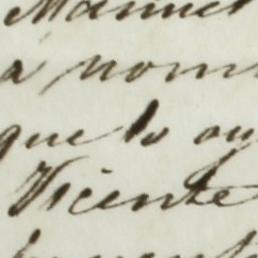 Manuel
a nom
que lo oy
Vicente